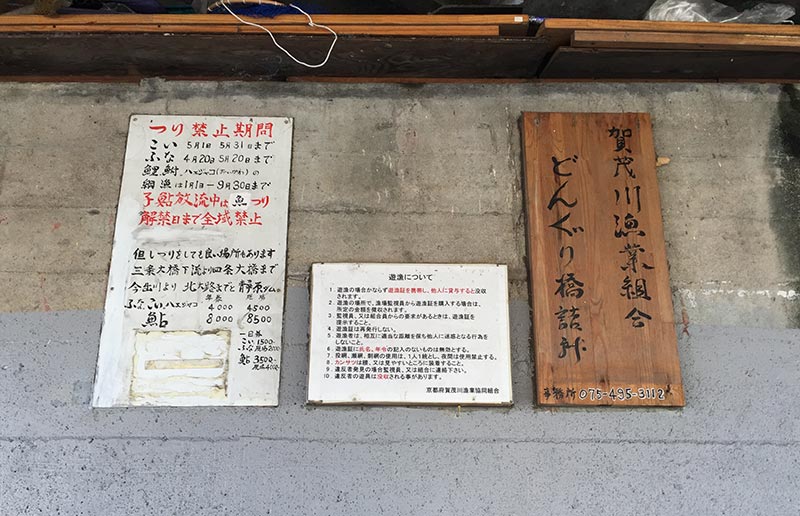 つり禁止期間
こい 5月1日 5月31日まで
ふな 4月20日 5月20日まで
鯉鮒 ハエジャコ(おいかわ)の
網漁は1月1日-9月30日まで
子鮎放流中は魚つり
解禁日まで全域禁止
但しつりをしても良い場所もあります
三条大橋下流より四条大橋まで
今出川より北大路までと静原ダム
年券 現場
ふな、こい、ハエジャコ 4000 4500
鮎 8000 8500
一日券
こい 1500-
鮎 3500-
遊漁について
1. 遊漁の場合かならず遊漁証を携帯し、他人に貸与すると没収
されます。
2. 遊漁の場所で、漁場監視員から遊漁証を購入する場合は、
所定の金額を徴収されます。
3. 監視員、又は組合員からの要求があるときは、遊漁証を
提示すること。
4. 遊漁証は再発行しない。
5. 遊漁者は、相互に適当な距離を保ち他人に迷惑となる行為を
しないこと。
6. 遊漁証に氏名、年令の記入のないものは無効とする。
7. 投網、瀬網、刺網の使用は、1人1統とし、夜間は使用禁止する。
8. カンサツは腰、又は見やすいところに装着すること。
9. 違反者発見の場合監視員、又は組合に連絡下さい。
10. 違反者の遊具は没収される事があります。
京都府賀茂川漁業協同組合
賀茂川漁業組合
どんぐり橋詰
事務所 075-495-3112